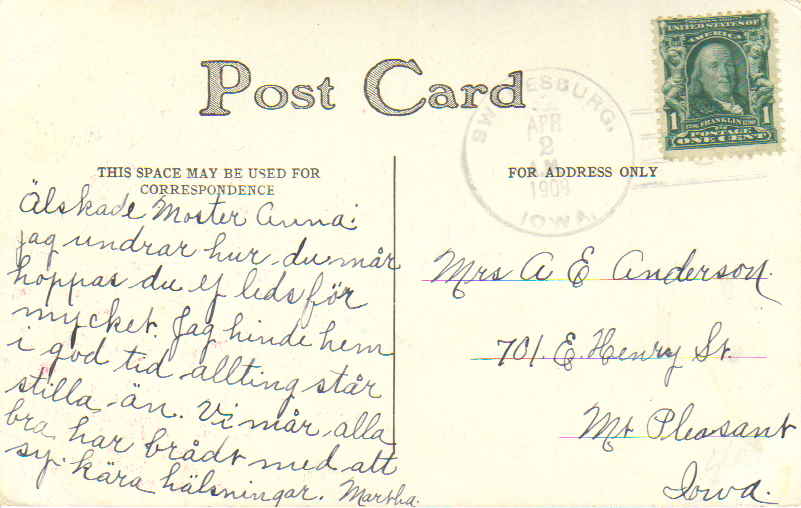 Post Card
THIS SPACE MAY BE USED FOR
CORRESPONDENCE
FOR ADDRESS ONLY
UNITED STATES OF
AMERICA
1
1
FRANKLIN
POSTAGE
ONE CENT
SWEDESBURG,
APR
2
1909
IOWA.
Älskade Moster Anna:
jag undrar hur du mår
hoppas du ej leds för
mycket. Jag hinde hem
i god tid allting står
stilla än. Vi mår alla
bra har brådt med att
sy. kära hälsningar. Martha.
Mrs A E Anderson.
701. E. Henry St.
Mt Pleasant
Iowa.